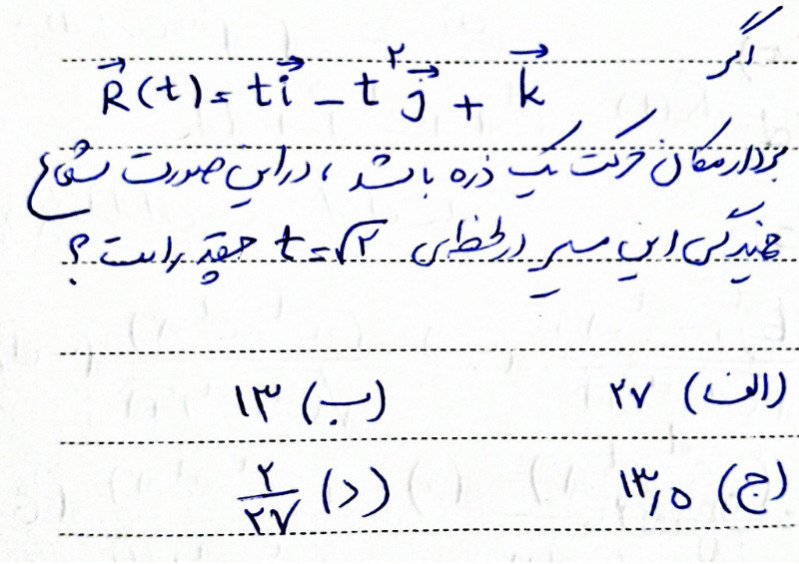 اگر
R⃗(t) = t i⃗ − t² j⃗ + k⃗
بردار مکان حرکت یک ذره باشد ، در این صورت شعاع
خمیدگی این مسیر در لحظه‌ی t=√۲ چقدر است ؟
الف) ۲۷
ب) ۱۳
ج) ۱۳٫۵
د) ۲/۲۷